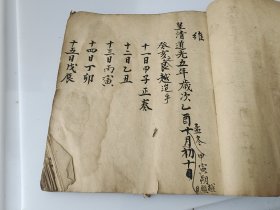 維
皇清道光五年歲次乙酉十月初十日
孟冬甲寅朔越
癸亥良越選事
十一日甲子正奏
十二日乙丑
十三日丙寅
十四日丁卯
十五日戊辰